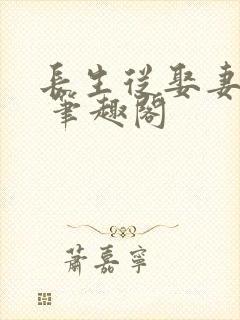 長生從娶妻
筆趣閣
蕭嘉寧